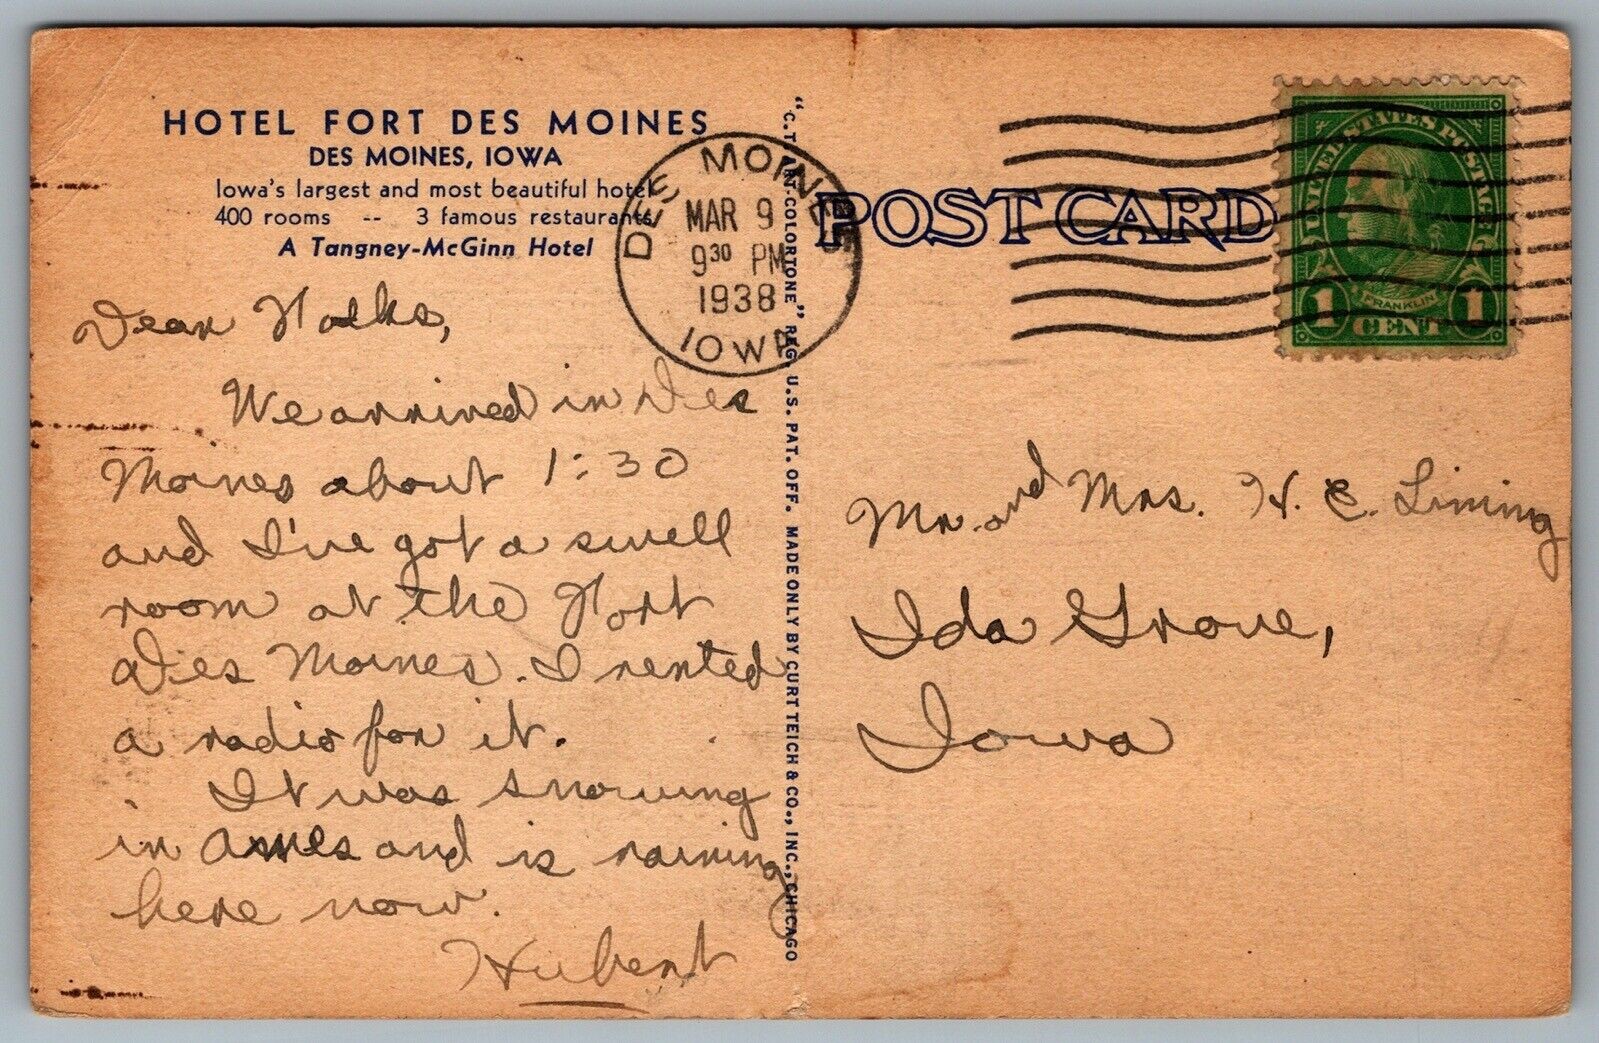 HOTEL FORT DES MOINES
DES MOINES, IOWA
Iowa's largest and most beautiful hotel
400 rooms -- 3 famous restaurants
A Tangney-McGinn Hotel
DES MOINES
MAR 9
9 30 PM
1938
IOWA
POST CARD
UNITED STATES POSTAGE
FRANKLIN
1 CENT 1
"C.T. ART-COLORTONE" REG. U.S. PAT. OFF. MADE ONLY BY CURT TEICH & CO., INC., CHICAGO
Dear Folks,
We arrived in Des
Moines about 1:30
and I've got a swell
room at the Fort
Des Moines. I rented
a radio for it.
It was snowing
in Ames and is raining
here now.
Hubert
Mr. and Mrs. H. E. Liming
Ida Grove,
Iowa